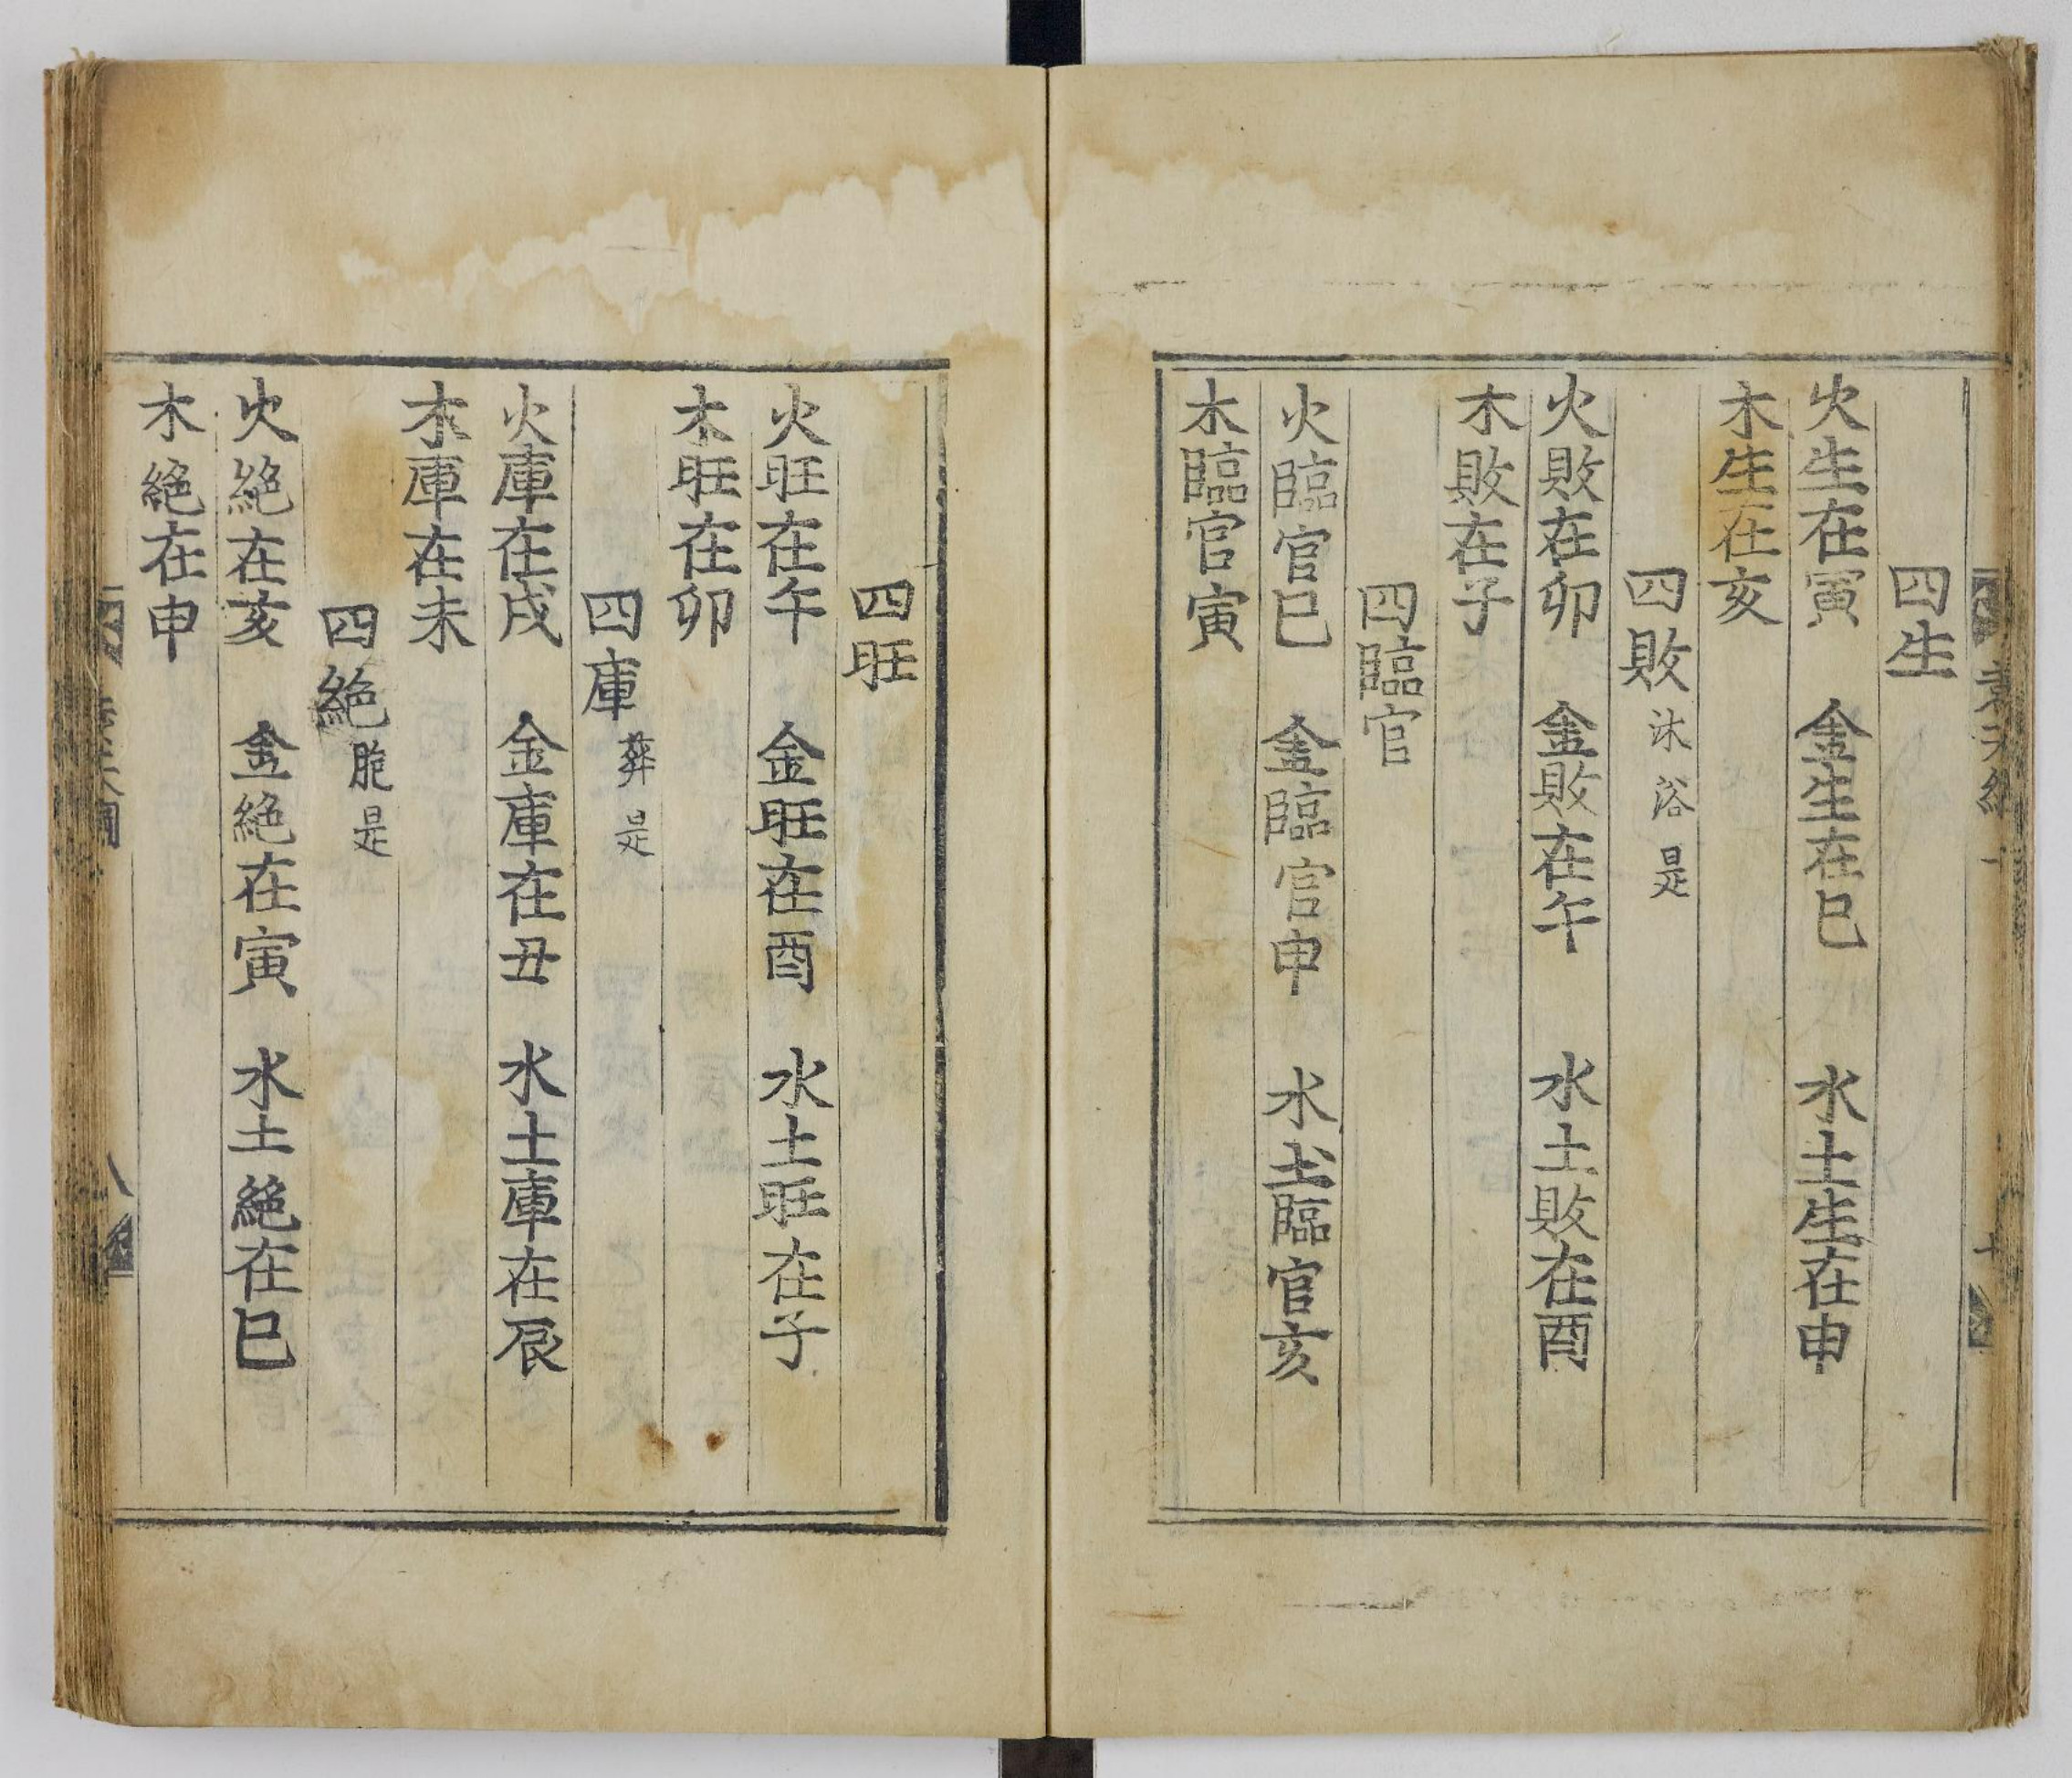 四生
火生在寅　金生在巳　水土生在申
木生在亥
四敗沐浴是
火敗在卯　金敗在午　水土敗在酉
木敗在子
四臨官
火臨官巳　金臨官申　水土臨官亥
木臨官寅
四旺
火旺在午　金旺在酉　水土旺在子
木旺在卯
四庫葬是
火庫在戌　金庫在丑　水土庫在辰
木庫在未
四絶胞是
火絶在亥　金絶在寅　水土絶在巳
木絶在申